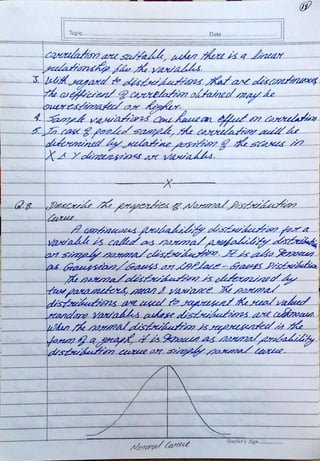 13
Topic
Date
correlation are suitable, when there is a linear
relationship b/w the variables.
3. With regard to distributions that are discontinuous
the coefficient of correlation obtained may be
overestimated or higher.
4. Sample variations can have an effect on correlation
5. In case of pooled sample, the correlation will be
determined by relative position of the scores in
X & Y dimensions or variables.
X
Q.8. Describe the properties of Normal Distribution
Curve.
A continuous probability distribution for a
variable is called as normal probability distribution
or simply normal distribution. It is also known
as Gaussian / Gauss or LaPlace - Gauss Distribution
The normal distribution is determined by
two parameters, mean & variance. The normal
distributions are used to represent the real valued
random variables whose distributions are unknown.
When the normal distribution is represented in the
form of a graph, it is known as normal probability
distribution curve or simply normal curve.
Normal Curve
Teacher's Sign